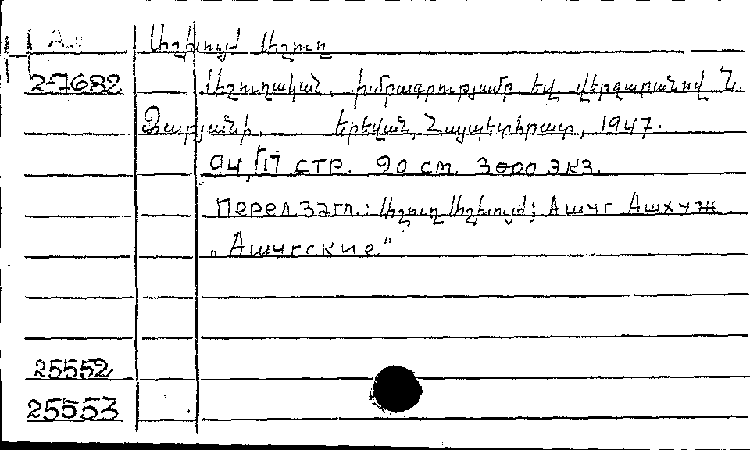 Աշխույժ Աշուղ
27682 Աշուղական. խմբագրությամբ եվ վերջաբանով Ն.
Զարյանի. Երեվան, Հայպետհրատ, 1947.
94/17 стр. 20 см. 3000 экз.
Перел загл.: Աշուղ Աշխույժ; Ашуг Ашхуж
„Ашугские"
25552
25553